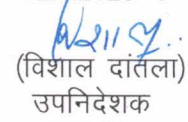 (विशाल दांतला)
उपनिदेशक